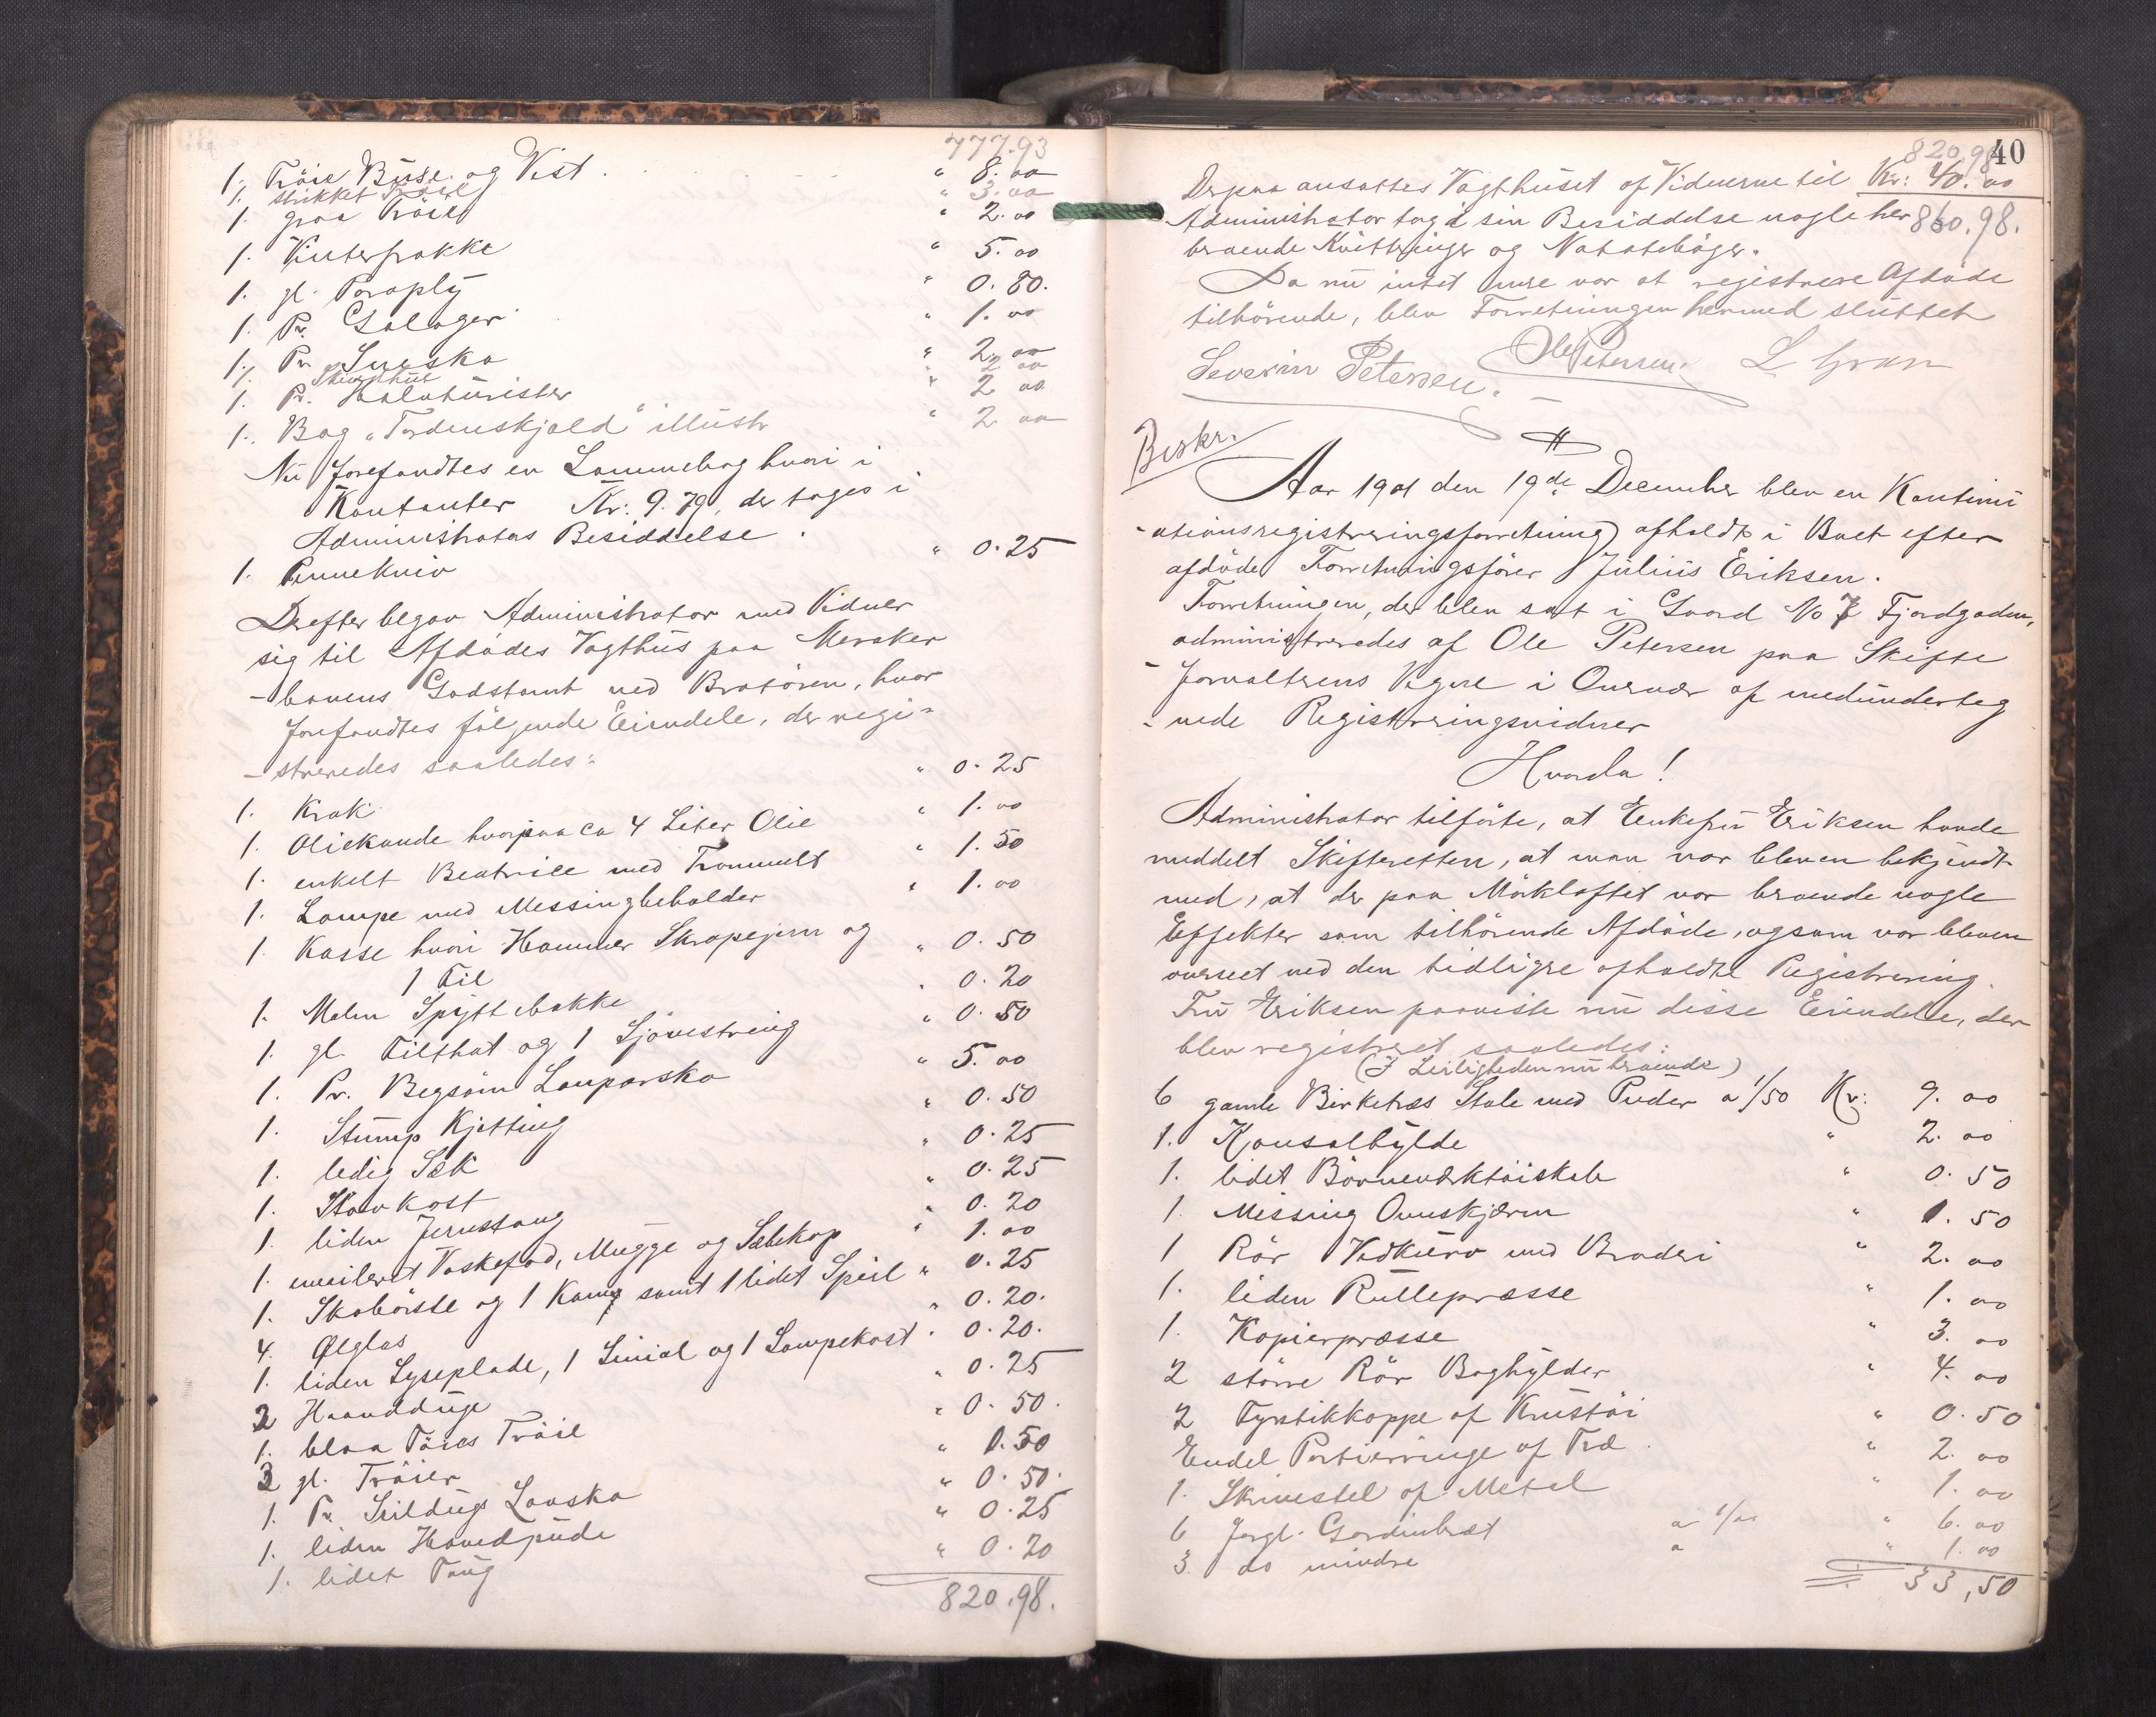 777.93
1. Tröie Buxe og Vest . " 8. 00
1. strikket Tröie " 3. 00
1. graa Tröie " 2. 00
1. Vinterfrakke " 5. 00
1. gl. Paraply " 0. 80.
1. Pr. Galoger " 1. 00
1. Pr. Snesko " 2. 00
1. Skindhue " 2. 00
1. Pr. " 2. 00
1. Bog "Tordenskjold" illustr " 2. 00
Nu forefandtes en Lommebog hvori i
Kontanter Kr: 9.79, der toges i
Administrators Besiddelse .
1. Pennekniv " 0. 25
Derefter begav Administrator med Vidner
sig til Afdødes Vagthus paa Meraker
-banens Godstomt ved Bratören, hvor
forefandtes følgende Eiendele, der regi-
-streredes saaledes:
1. Krak " 0. 25
1. Oliekande hvorpaa ca 4 Liter Olie " 1. 00
1. enkelt med " 1. 50
1. Lampe med Messingbeholder " 1. 00
1 Kasse hvori Hammer Skrapejern og
1 Fil " 0. 50
1. Malm Spyttebakke " 0. 20
1. gl. Filthat og 1 " 0. 50
1. Pr. Begsöm Lauparsko " 5. 00
1. Stump Kjetting " 0. 50
1. ledig Sæk " 0. 25
1. kost " 0. 25
1. liden Jernstang " 0. 20
1. emileret Vaskefad, Mugge og Sæbekop " 1. 00
1. Skobörste og 1 Kam samt 1 lidet Speil " 0. 25
4. Ølglas " 0. 20.
1. liden Lyseplade, 1 Linial og 1 Lampekost " 0. 20.
2 Haandduge " 0. 25
1. blaa Töies Tröie " 0. 50.
3 gl. Tröier " 1. 50
1. Pr. Seildugs Lavsko " 0. 50.
1. liden Hovedpude " 0. 25
1. lidet Taug " 0. 20
820.98.
820.98
40
Derpaa ansattes Vagthuset af Vidnerne til Kr: 40. 00
Administrator tog i sin Besiddelse nogle her 860.98.
beroende Kvitteringer og Notatebøger.
Da nu intet mere var at registrere Afdøde
tilhörende, blev Forretningen hermed sluttet
Severin Petersen. Ole Petersen. L Gran
Beskr.
Aar 1901 den 19de December blev en Kontinu
-ationsregistreringsforretning afholdt i Boet efter
afdøde Forretningsförer Julius Eriksen.
Forretningen, der blev sat i Gaard No 7 Fjordgaden,
administreredes af Ole Petersen paa Skifte
-forvalterens Vegne i Overvær af medunderteg
-nede Registreringsvidner
Hvorda!
Administrator tilförte, at Enkefru Eriksen havde
meddelt Skifteretten, at man var bleven bekjendt
med, at der paa Mörkloftet var beroende nogle
Effekter som tilhörende Afdøde, og som var bleven
overseet ved den tidligere afholdte Registrering.
Fru Eriksen paaviste nu disse Eiendele, der
blev registreret saaledes:
(I Leiligheden nu beroende)
6 gamle Birketræs Stole med Puder a 1/50 Kr: 9. 00
1. Konsolhylde " 2. 00
1. lidet Börneverktöiskab " 0. 50
1. Messing Ovnskjærm " 1. 50
1 Rör Vedkurv med Broderi " 2. 00
1. liden Rullepresse " 1. 00
1. Kopierpresse " 3. 00
2 större Rör Boghylder " 4. 00
2 Fyrstikkoppe af Krustöi " 0. 50
Endel Portierringe af Træ . " 2. 00
1. Skrivestel af Metal " 1. 00
6 forgl. Gardinbræt a 1/00 " 6. 00
3. do mindre a " 1. 00
33,50